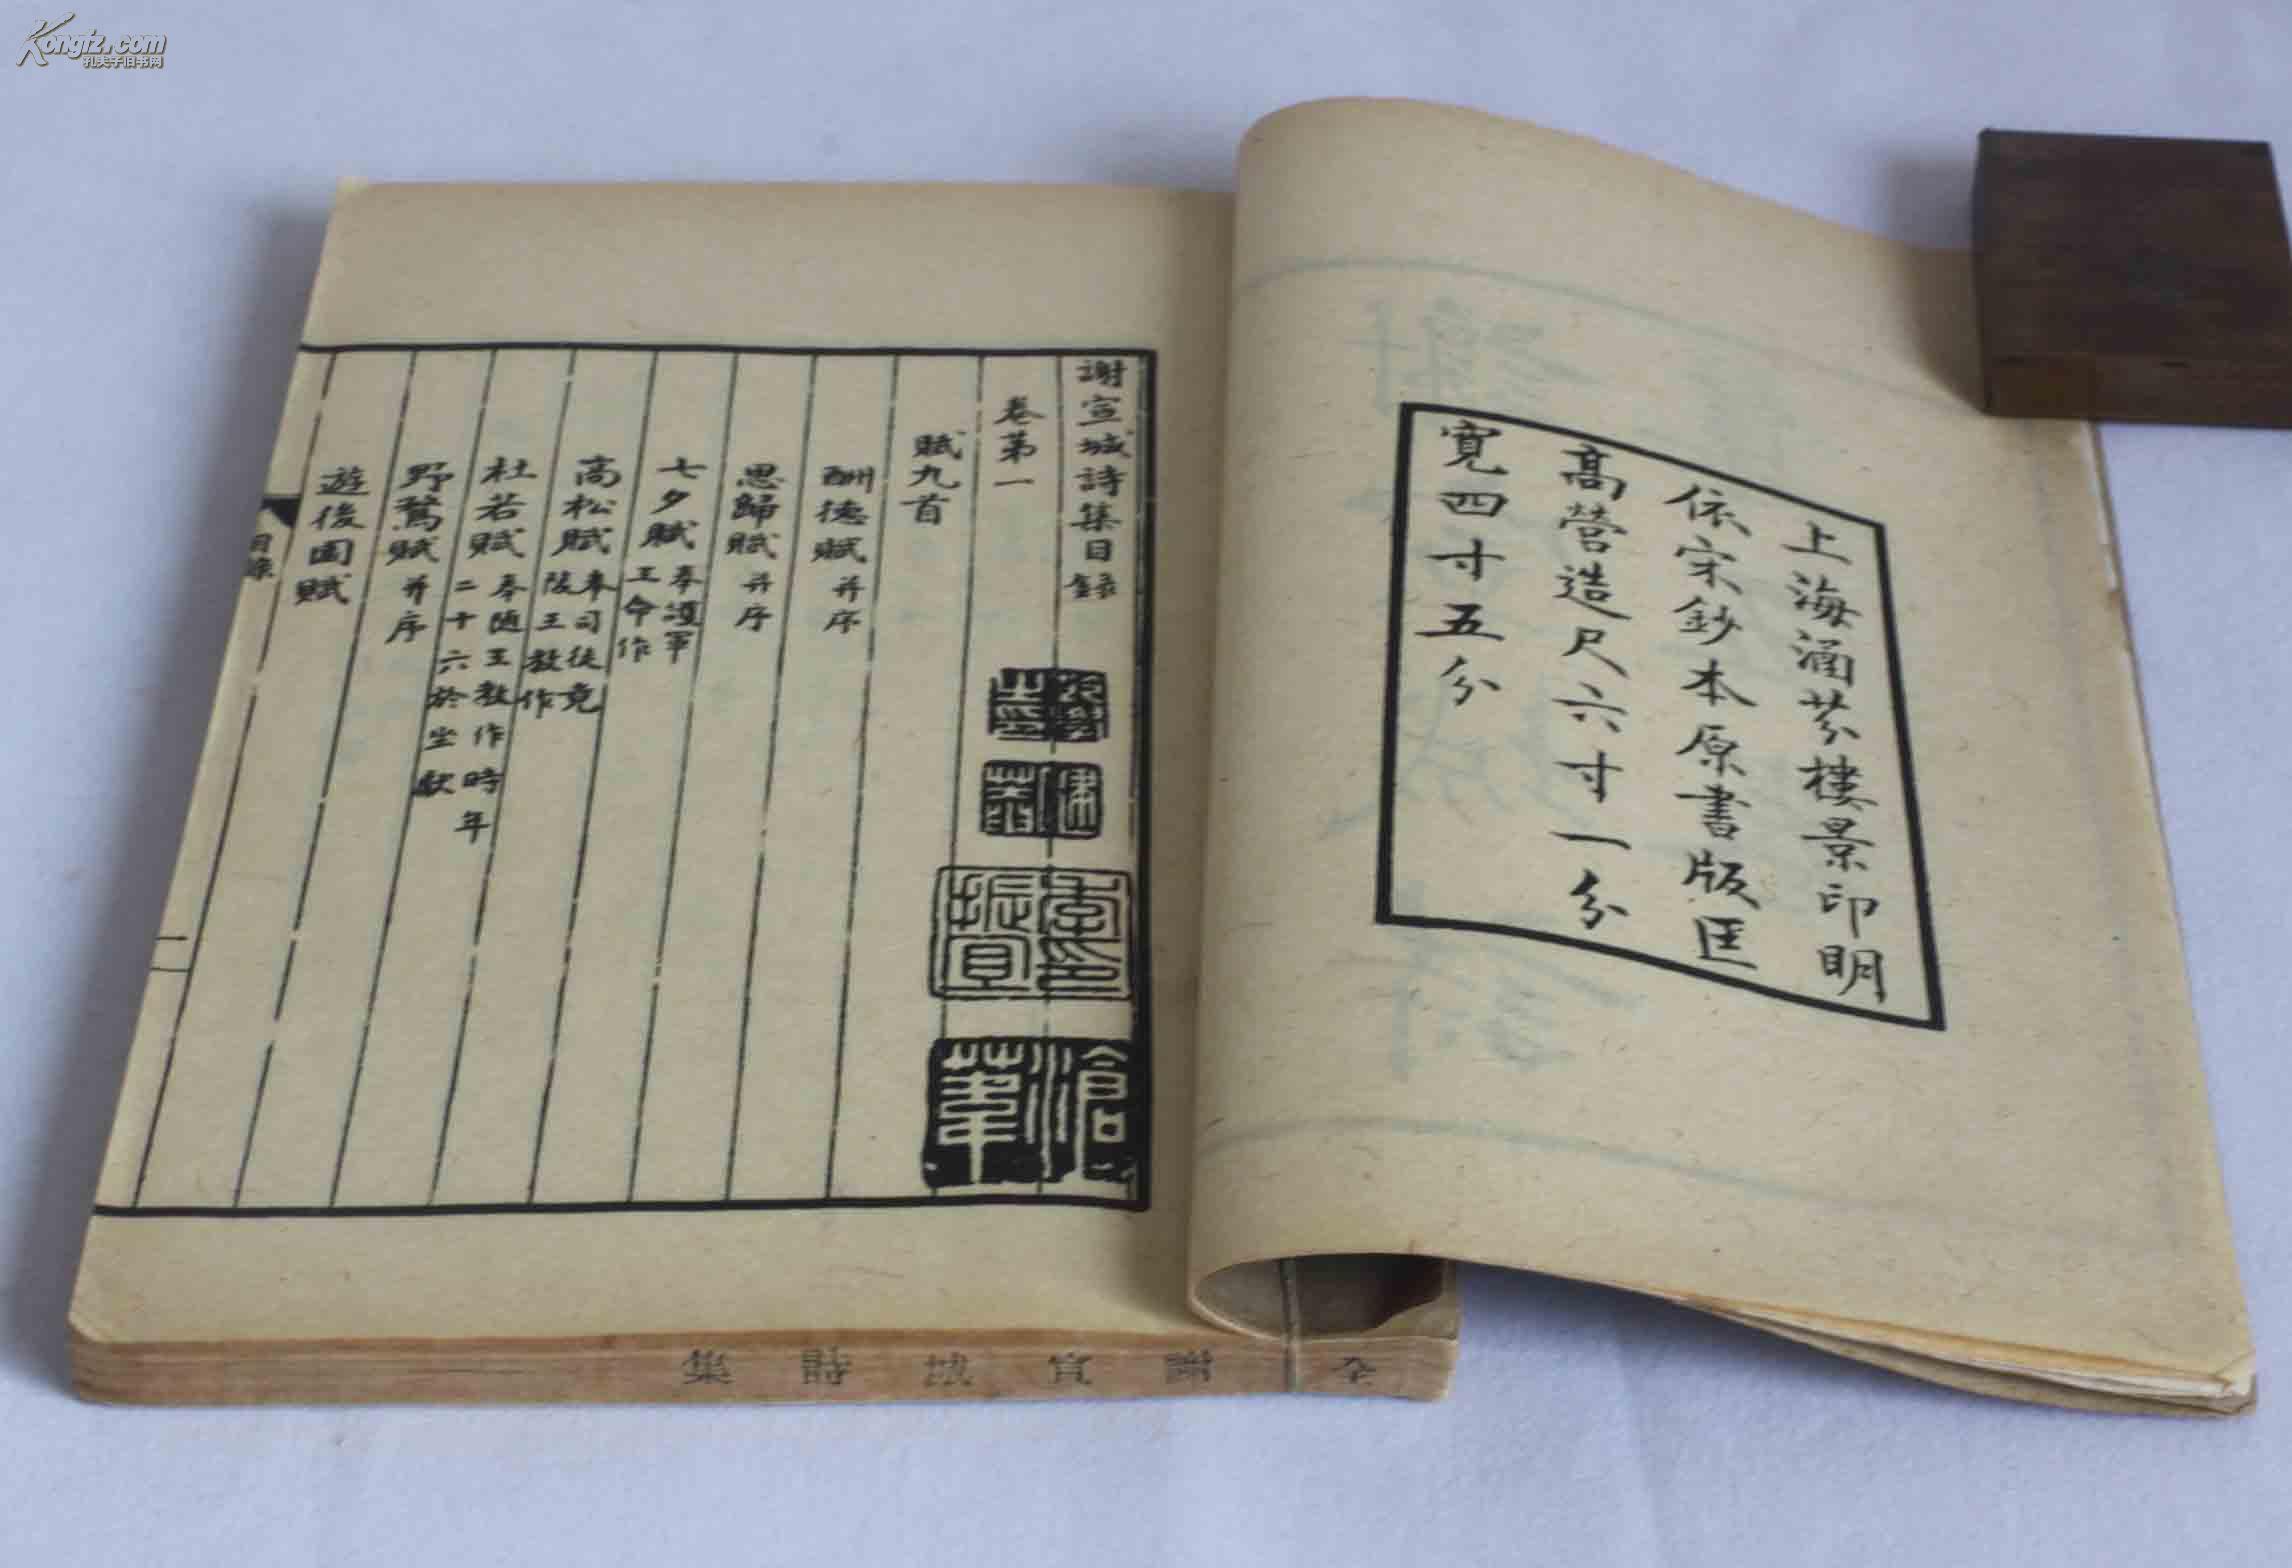 Kongfz.com
孔夫子旧书网
上海涵芬樓景印明
依宋鈔本原書版匡
高營造尺六寸一分
寬四寸五分
謝宣城詩集目錄
卷第一
賦九首
酬德賦 并序
思歸賦 并序
七夕賦 奉護軍
王命作
高松賦 奉司徒竟
陵王教作
杜若賦 奉隨王教作時年
二十六於坐獻
野鶩賦 并序
遊後園賦
目錄
一
滄
葦
季印
振宜
全 謝宣城詩集